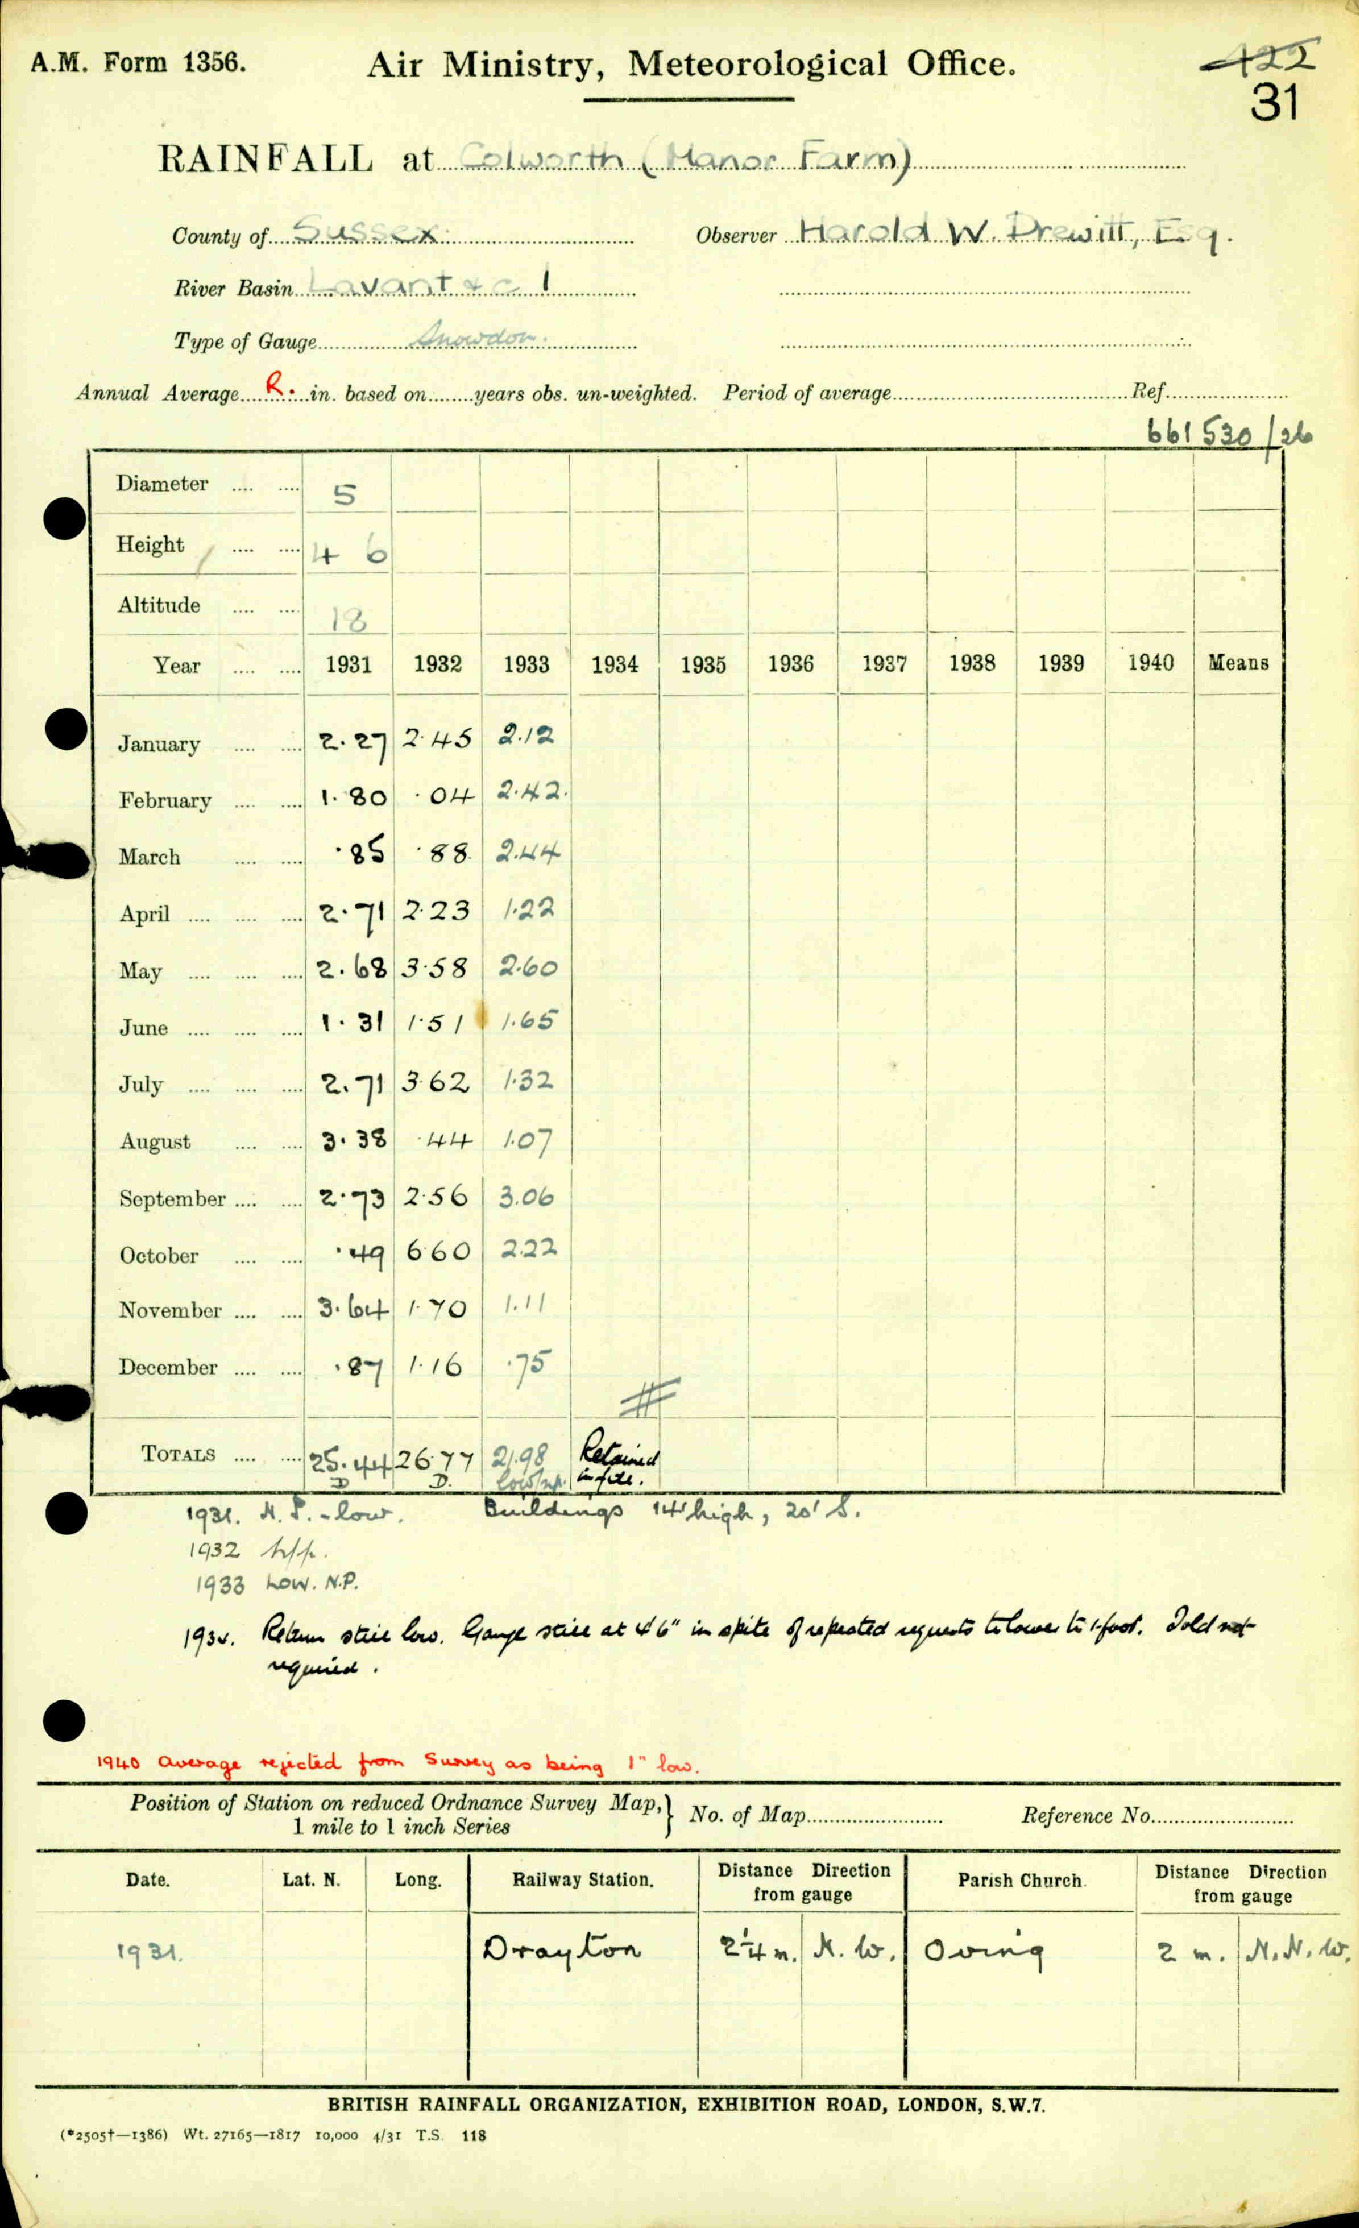 A.M. Form 1356.
Air Ministry, Meteorological Office.
422
31
RAINFALL at Colworth (Manor Farm)
County of Sussex
Observer Harold W. Drewitt, Esq.
River Basin Lavant &c 1
Type of Gauge Snowdon.
Annual Average R. in. based on years obs. un-weighted. Period of average Ref.
661530/26
Diameter 5
Height 4 6
Altitude 18
Year 1931 1932 1933 1934 1935 1936 1937 1938 1939 1940 Means
January 2.27 2.45 2.12
February 1.80 .04 2.42
March .85 .88 2.44
April 2.71 2.23 1.22
May 2.68 3.58 2.60
June 1.31 1.51 1.65
July 2.71 3.62 1.32
August 3.38 .44 1.07
September 2.73 2.56 3.06
October .49 6.60 2.22
November 3.64 1.70 1.11
December .87 1.16 .75
TOTALS 25.44 26.77 21.98 Retained
D D. low in file.
1931. N.P. - low. Buildings 14' high, 20' S.
1932
1933 Low. N.P.
1934. Return still low. Gauge still at 4'6" in spite of repeated requests to lower to 1 foot. Told not
required.
1940 average rejected from Survey as being 1" low.
Position of Station on reduced Ordnance Survey Map, 1 mile to 1 inch Series } No. of Map Reference No.
Date. Lat. N. Long. Railway Station. Distance Direction from gauge Parish Church. Distance Direction from gauge
1931. Drayton 2¼ m. N.W. Oving 2 m. N.N.W.
BRITISH RAINFALL ORGANIZATION, EXHIBITION ROAD, LONDON, S.W.7.
(*2505†—1386) Wt. 27165—1817 10,000 4/31 T.S. 118